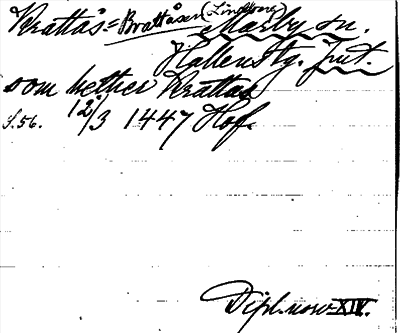 Krattås = Brattåsen (Lindberg) Marby sn.
Hallens tg. Jmt.
som hether Krattas
s. 56. 12/3 1447 Hof.
Dipl. norv. XIV.